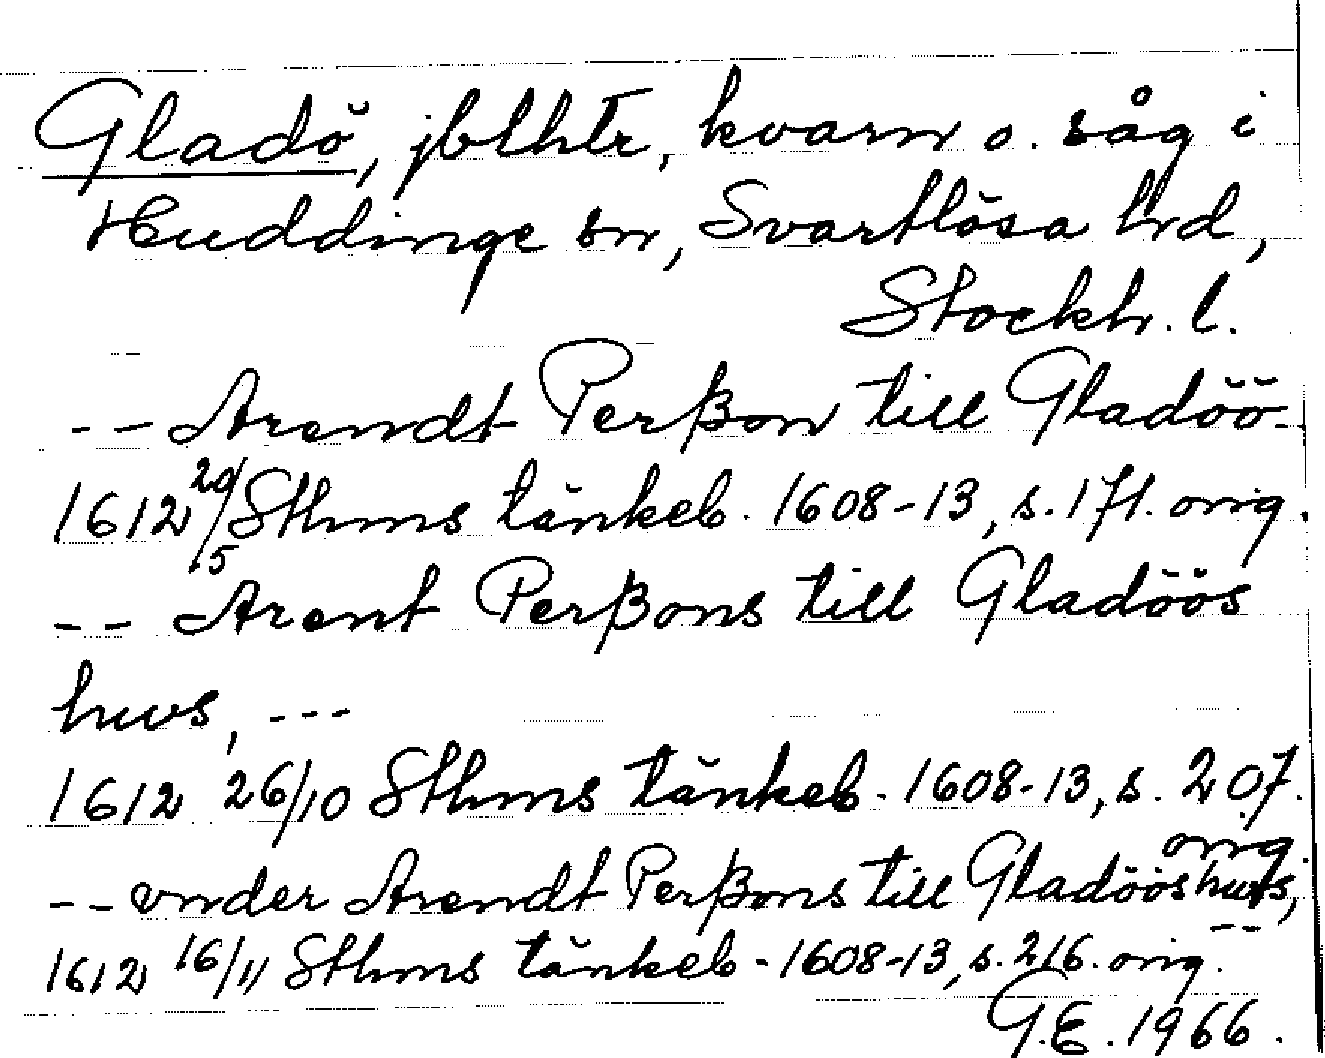 Gladö, jblhtr, kvarn o. såg i
Huddinge sn, Svartlösa hrd,
Stockh. l.
-- Arendt Perßon till Gladöö-
1612 20/5 Sthms tänkeb. 1608-13, s. 171. orig.
-- Arent Perßons till Gladöös
huus, ---
1612 26/10 Sthms tänkeb. 1608-13, s. 207.
orig.
-- vnder Arendt Perßons till Gladööshuus,
--
1612 16/11 Sthms tänkeb. 1608-13, s. 216. orig.
G.E. 1966.